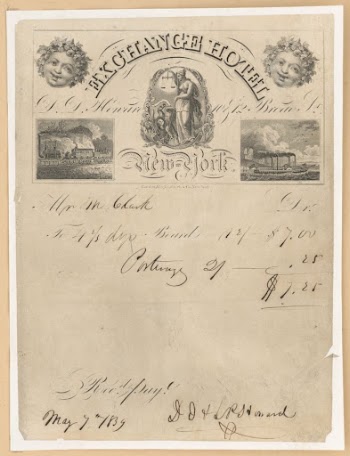 EXCHANGE HOTEL
D. D. Howard No. 12 Broad St.
New-York.
Mr. M. Dr.
To 4 2/3 days Board 12/- $7.00
Porterage 2/ - .25
$7.25
Rec'd pay't
May 7th 1839 D. D. & L. P. Howard